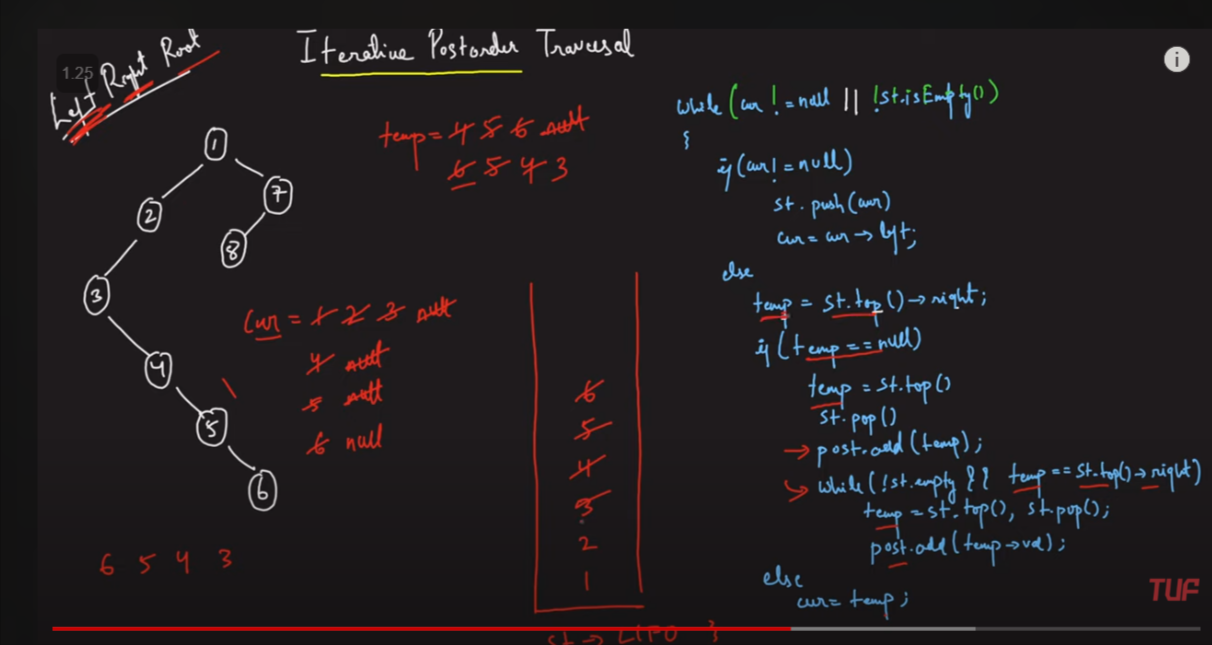 1.25
Left Right Root
Iterative Postorder Traversal
temp = 4 5 6 null
6 5 4 3
1
2
7
8
3
4
5
6
Cur = 1 2 3 null
4 null
5 null
6 null
6 5 4 3
6
5
4
3
2
1
st → LIFO }
while (cur != null || !st.isEmpty())
{
if (cur != null)
st.push(cur)
cur = cur → left;
else
temp = st.top() → right;
if (temp == null)
temp = st.top()
st.pop()
→ post.add(temp);
→ while (!st.empty && temp == st.top() → right)
temp = st.top(), st.pop();
post.add(temp → val);
else
cur = temp;
TUF